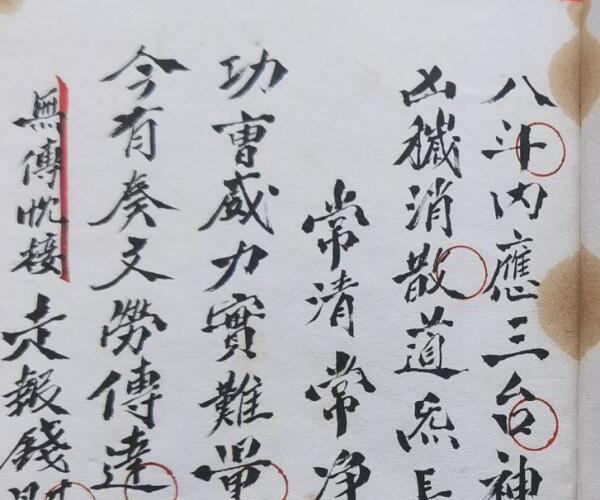 八斗内應三台神
凶穢消散道炁長
常清常净
功曹威力實難量
今有奏文勞傳達
無傳忱接
走報錢財